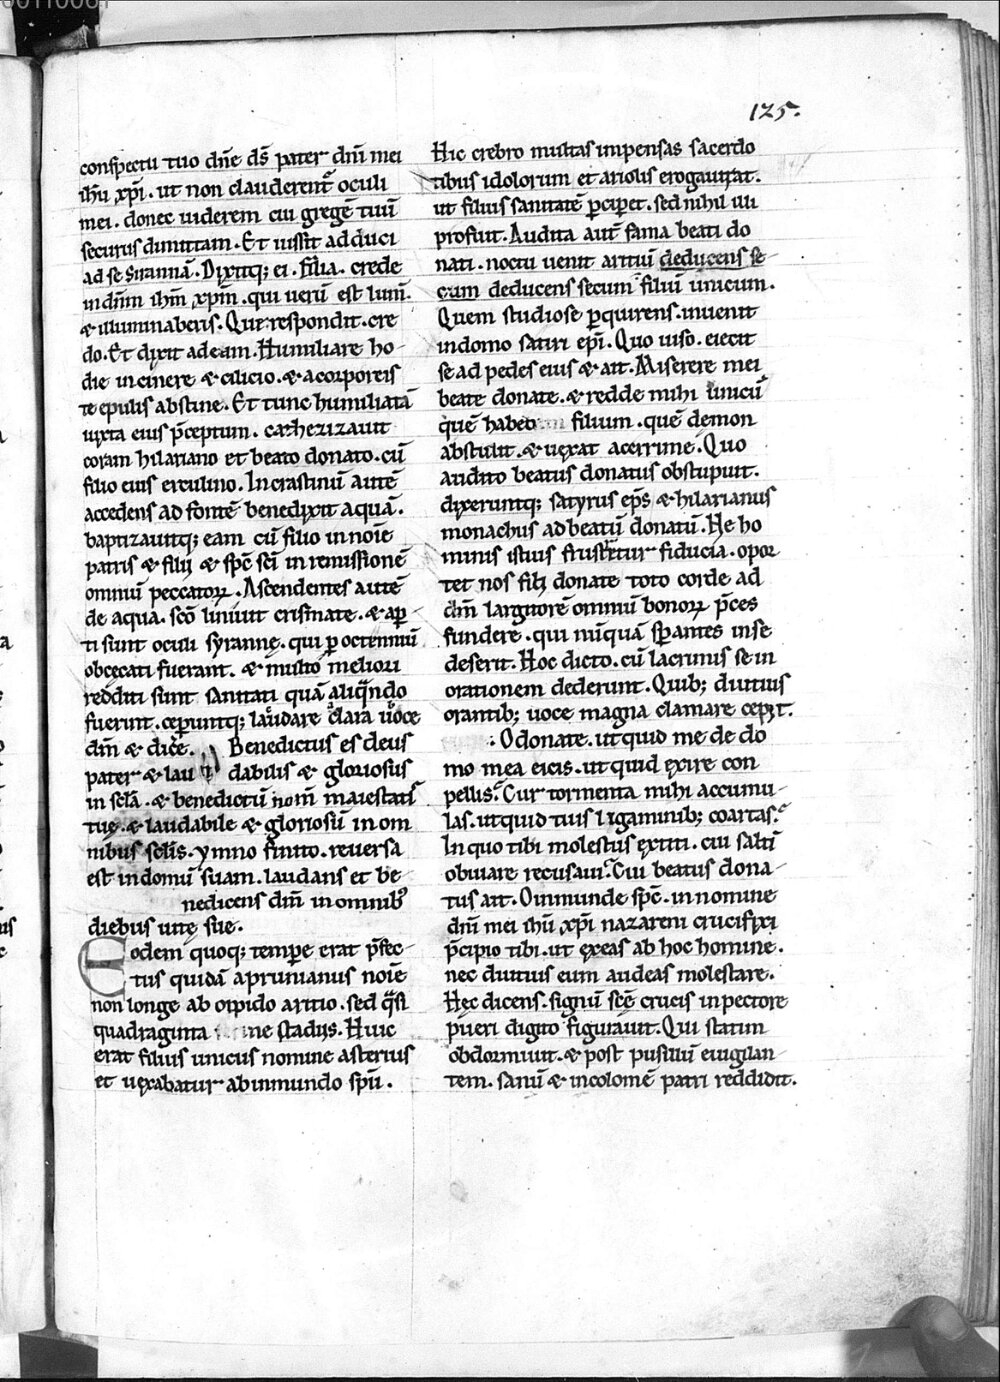 125.
conspectu tuo dn̄e ds̄ pater dnī mei
ihū xp̄i. ut non clauderent᷑ oculi
mei. donec uiderem cui gregē tuū
securus dimittam. Et iussit adduci
ad se Sirannā. Dixitq; ei. Filia. crede
in dn̄m ihm̄ xp̄m. qui uerū est lum̄.
& illuminaberis. Que respondit. cre
do. Et dixit ad eam. Humiliare ho-
die in cinere & cilicio. & a corporeis
te epulis abstine. Et tunc humiliatā
iuxta eius p̄ceptum. cathezizauit
coram hilariano et beato donato. cū
filio eius erculino. In crastinū autē
accedens ad fontē benedixit aquā.
baptizauitq; eam cū filio in noīe
patris & filij & sp̄c sc̄i in remissionē
omniū peccatoꝝ. Ascendentes autē
de aqua. sc̄o liniuit crismate. & ap̱
ti sunt oculi syrannę. qui p̱ octenniū
obcęcati fuerant. & multo meliori
redditi sunt sanitati quā aliqn̄do
fuerint. cep̱untq; laudare clara uoce
dm̄ & dicē. Benedictus es deus
pater & lau dabilis & gloriosus
in scl̄a. & benedictū nom̄ maiestatis
tuę. & laudabile & gloriosū in om
nibus scl̄is. ymno finito. reuersa
est in domū suam. laudans et be-
nedicens dm̄ in omnibꝰ
diebus uitę sue.
Eodem quoq; tempe erat p̄fec-
tus quidā aprunianus noīe
non longe ab oppido aritio. sed q̄si
quadraginta ne stadijs. Huic
erat filius unicus nomine asterius
et uexabatur ab inmundo sp̄u.
Hic crebro multas impensas sacerdo
tibus idolorum et ariolis erogauerat.
ut filius sanitatē p̱cip̱et. sed nihil illi
profuit. Audita autē fama beati do
nati. noctu uenit aritiū deducens se-
cum deducens secum filiū unicum.
Quem studiose p̱quirens. inuenit
in domo satiri ep̄i. Quo uiso. eiecit
se ad pedes eius & ait. Miserere mei
beate donate. & redde mihi unicū
quē habe filium. quē demon
abstulit. & uexat acerrime. Quo
audito beatus donatus obstupuit.
dixeruntq; satyrus ep̄s & hilarianus
monachus ad beatū donatū. Ne ho
minis istius frustretur fiducia. opor
tet nos fili donate toto corde ad
dm̄ largitorē omniū bonoꝝ p̄ces
fundere. qui nūquā sp̱antes in se
deserit. Hoc dicto. cū lacrimis se in
orationem dederunt. Quib; diutius
orantib; uoce magna clamare cepit.
O donate. ut quid me de do
mo mea eicis. ut quid exire con
pellis. Cur tormenta mihi accumu-
las. ut quid tuis ligaminib; coartas.
In quo tibi molestus extiti. cui saltī
obuiare recusaui. Cui beatus dona-
tus ait. O inmunde sp̄c. in nomine
dnī mei ihū xp̄i nazareni crucifixi
p̄cipio tibi. ut exeas ab hoc homine.
nec diutius eum audeas molestare.
Hęc dicens. signū sc̄ę crucis in pectore
pueri digito figurauit. Qui statim
obdormiuit. & post pusillū euigilan-
tem. sanū & incolomē patri reddidit.